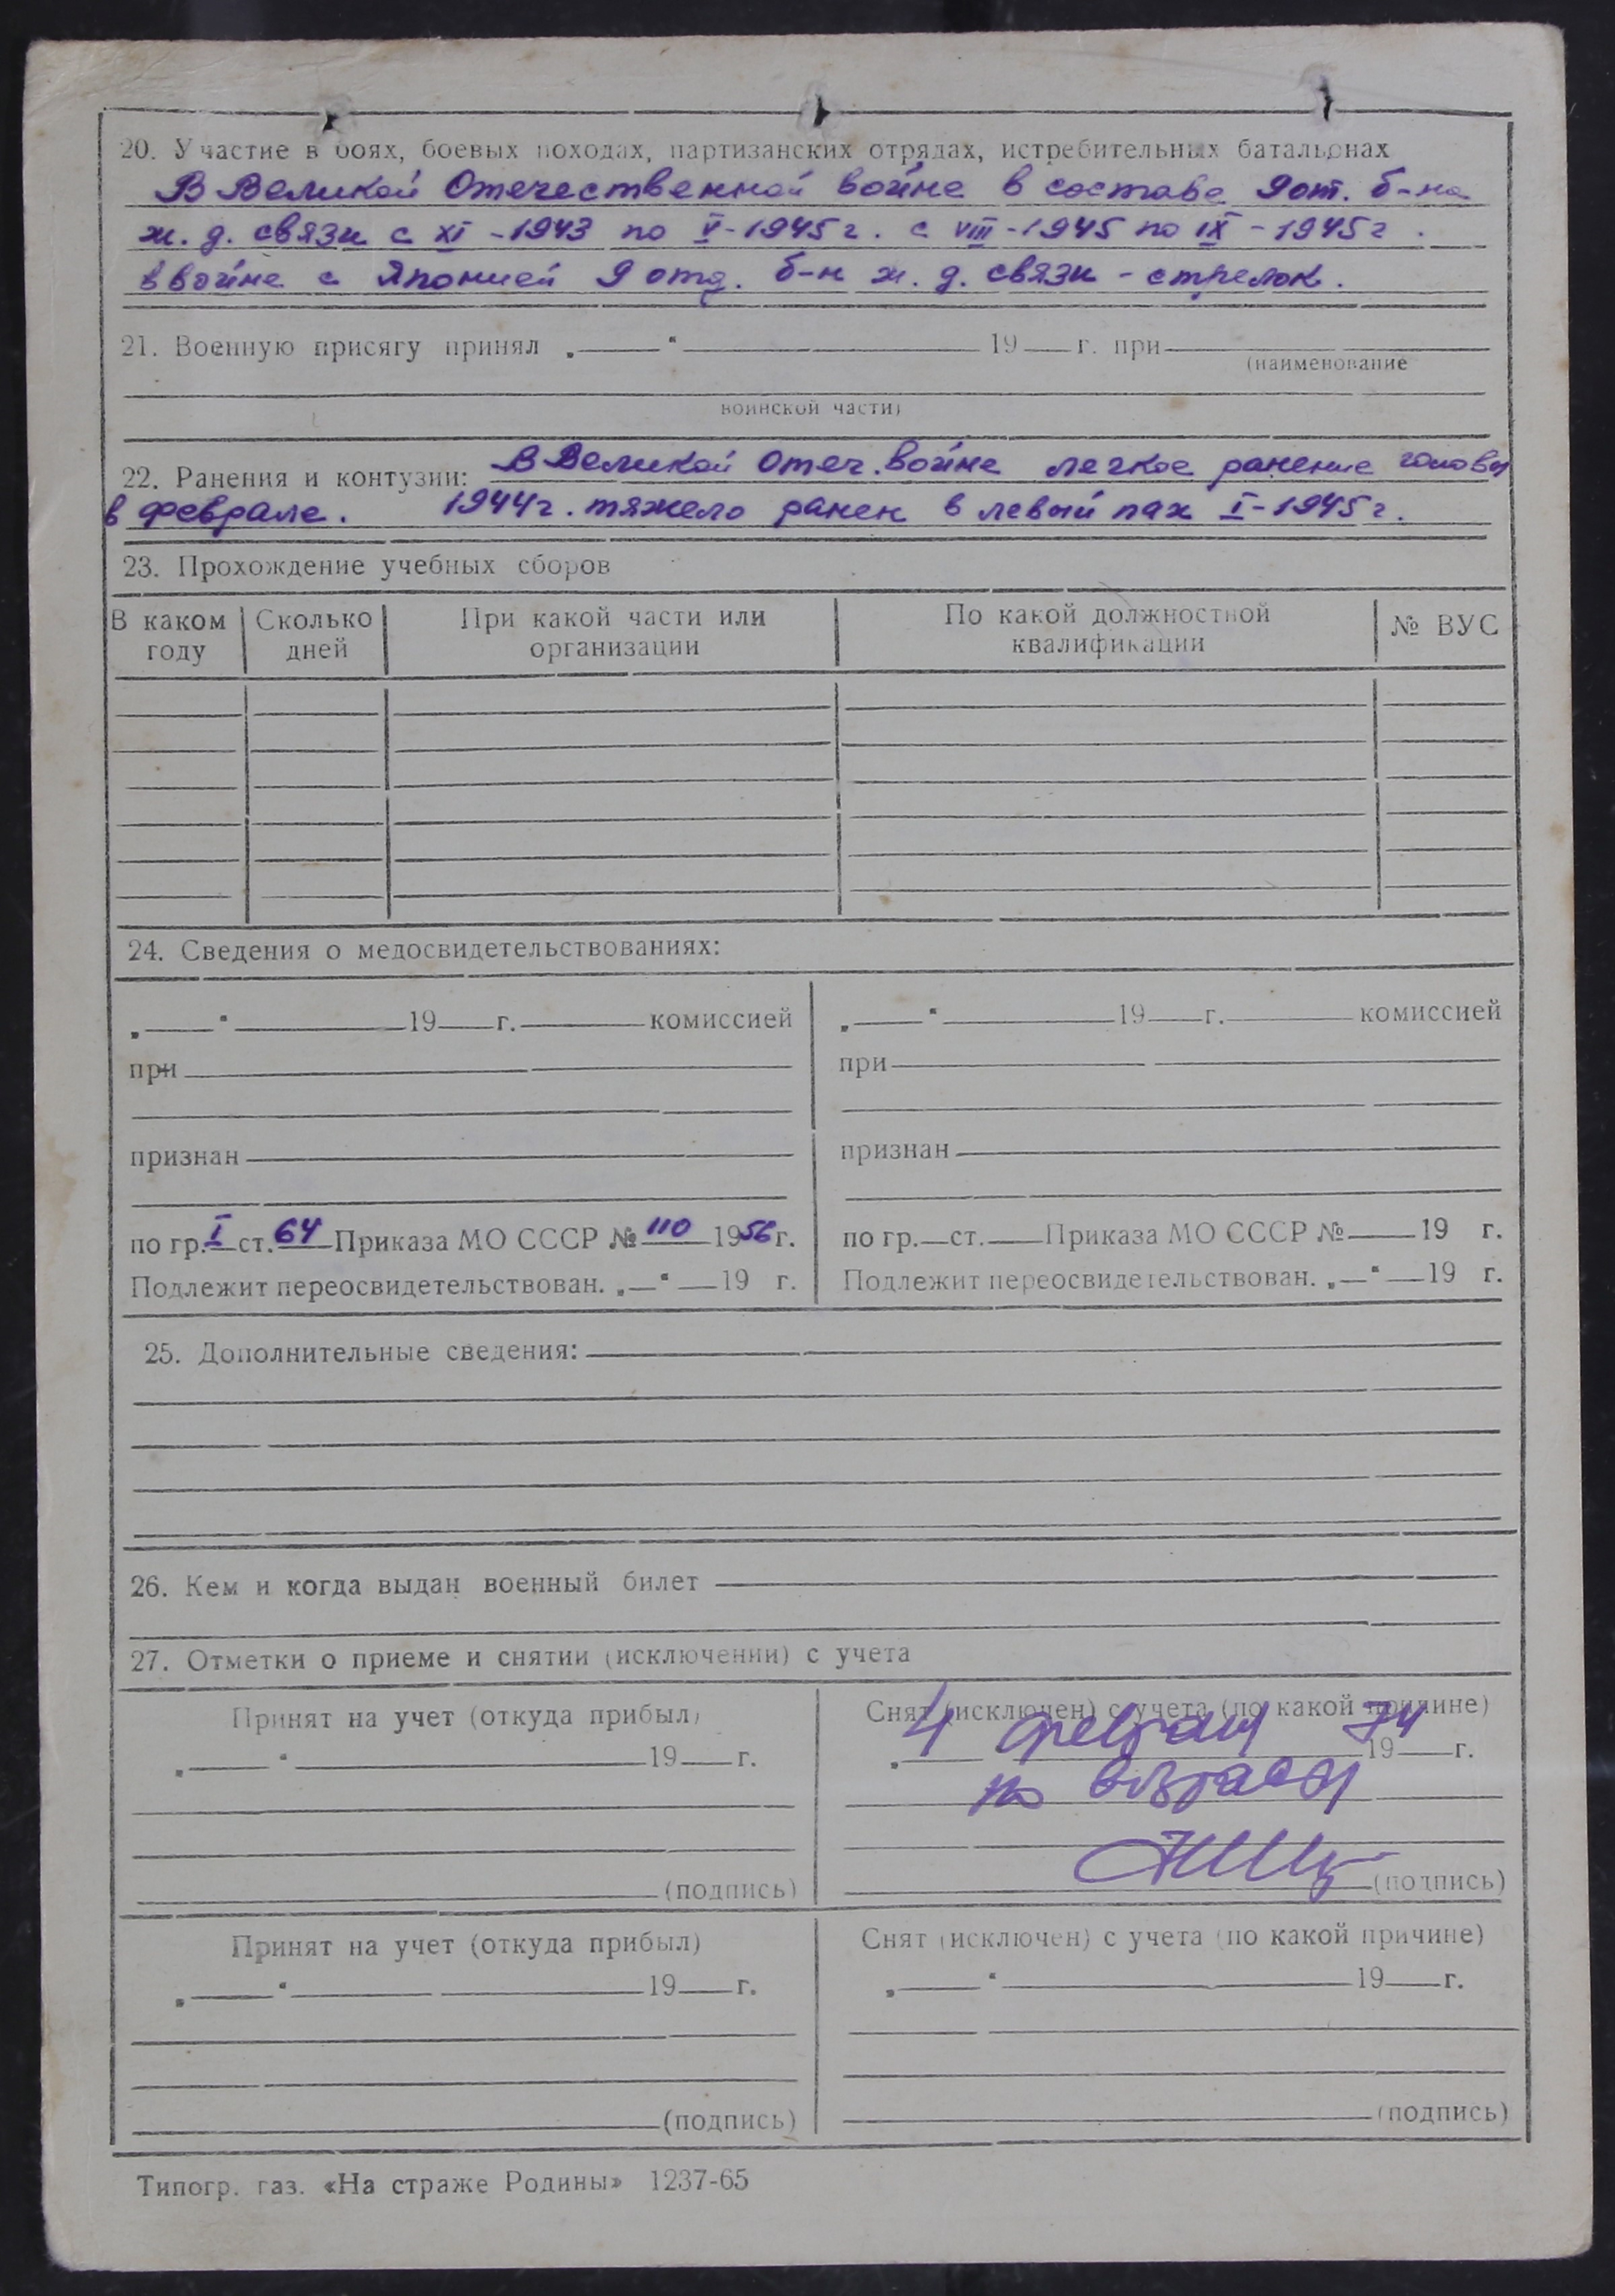 20. Участие в боях, боевых походах, партизанских отрядах, истребительных батальонах
В Великой Отечественной войне в составе 9 от. б-на
ж. д. связи с XI - 1943 по V - 1945 г. с VIII - 1945 по IX - 1945 г.
в войне с Японией 9 отд. б-н ж. д. связи - стрелок.
21. Военную присягу принял „ “ 19 г. при
(наименование
воинской части)
22. Ранения и контузии: В Великой Отеч. войне легкое ранение головы
в феврале. 1944 г. тяжело ранен в левый пах I - 1945 г.
23. Прохождение учебных сборов
В каком году Сколько дней При какой части или организации По какой должностной квалификации № ВУС
24. Сведения о медосвидетельствованиях:
„ “ 19 г. комиссией
при
признан
по гр. I ст. 64 Приказа МО СССР № 110 1956 г.
Подлежит переосвидетельствован. „ “ 19 г.
„ “ 19 г. комиссией
при
признан
по гр. ст. Приказа МО СССР № 19 г.
Подлежит переосвидетельствован. „ “ 19 г.
25. Дополнительные сведения:
26. Кем и когда выдан военный билет
27. Отметки о приеме и снятии (исключении) с учета
Принят на учет (откуда прибыл)
„ “ 19 г.
(подпись)
Снят (исключен) с учета (по какой причине)
„ 4 февраля 1974 г.
по возрасту
(подпись)
Принят на учет (откуда прибыл)
„ “ 19 г.
(подпись)
Снят (исключен) с учета (по какой причине)
„ “ 19 г.
(подпись)
Типогр. газ. «На страже Родины» 1237-65